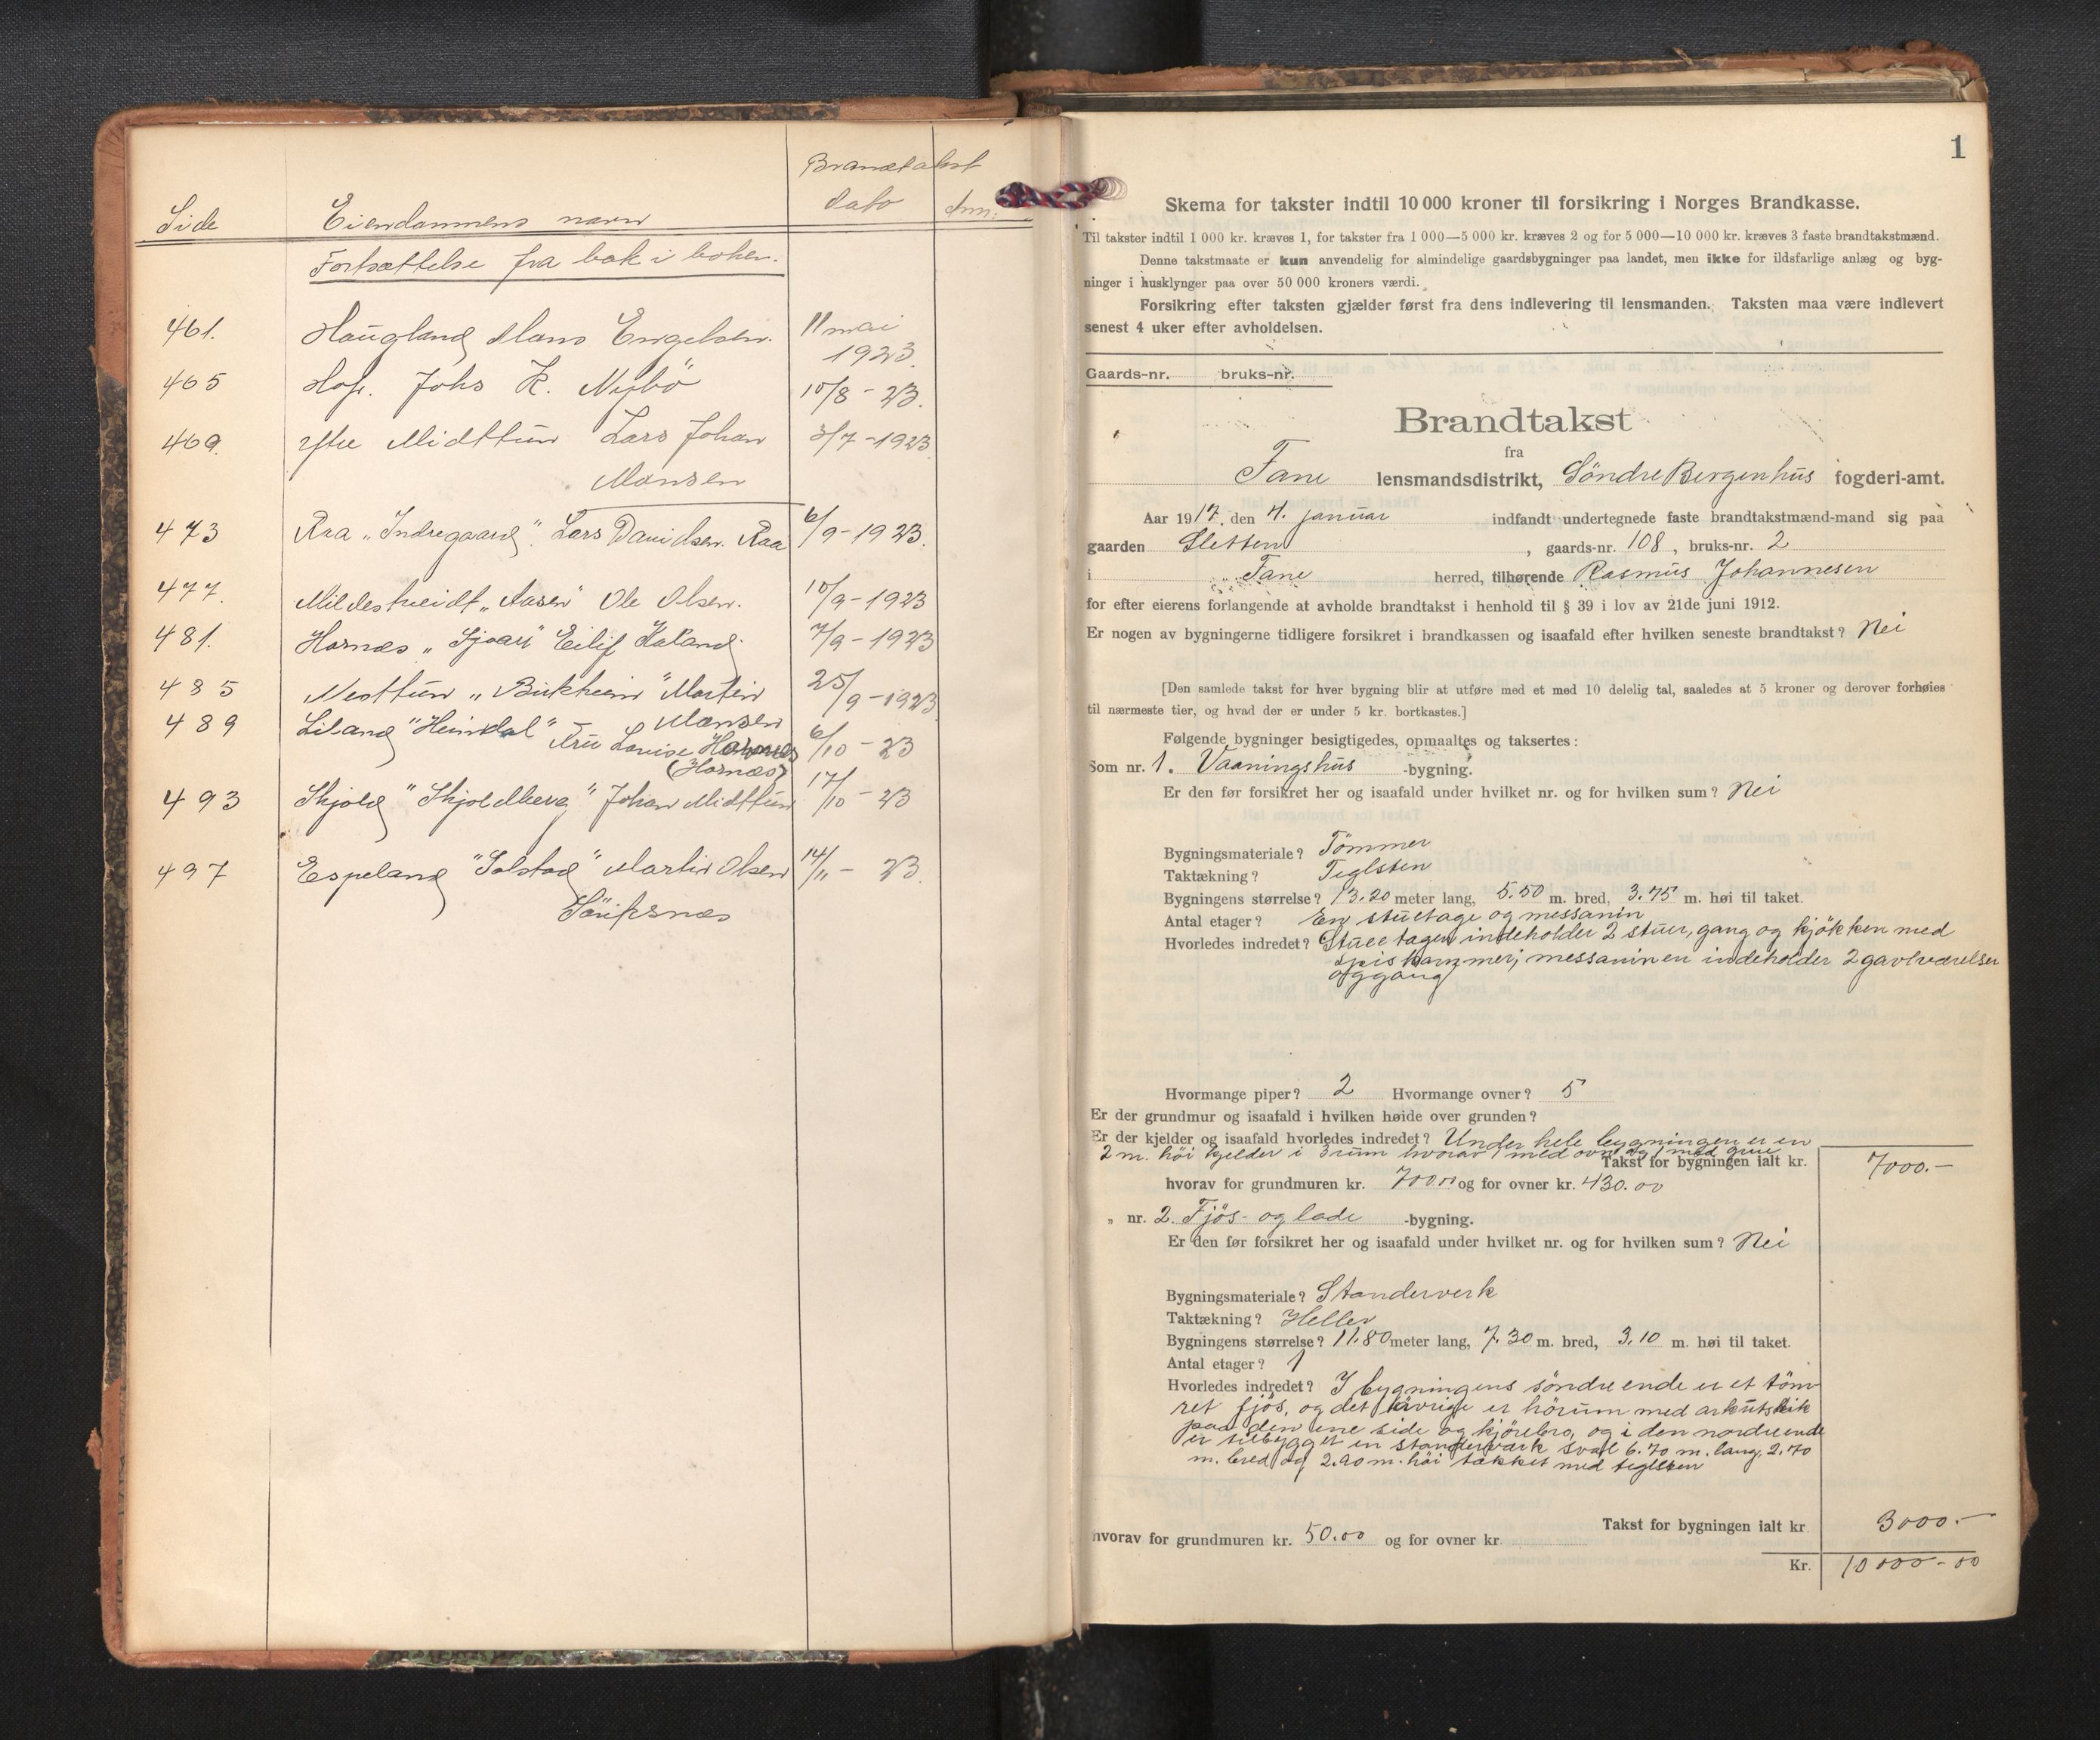 Brandtakst
Side Eiendommens navn dato Anm.
Fortsættelse fra bak i boken.
461. Haugland Hans Engelsen. 11 mai
1923.
465 Hop. Johs K. Nybö 10/8 - 23.
469. Ytre Midttun Lars Johan 3/7 - 1923.
Monsen
473 Raa „Indregaard". Lars Davidsen Raa 6/9 - 1923.
477. Mildestveidt „Aasen" Ole Olsen. 10/9 - 1923
481. Hornæs „Sjoar" Eilif Kaland. 7/9 - 1923
485 Nesttun „Birkheim" Martin 25/9 - 1923
Monsen
489 Liland "Heimdal" Fru Lovise Hornæs 6/10 - 23
(Hornæs)
493 Skjold "Skjoldberg" Johan Midttun 17/10 - 23
497 Espeland "Solstad" Martin Olsen 14/11 - 23.
Söviksnæs
1
Skema for takster indtil 10 000 kroner til forsikring i Norges Brandkasse.
Til takster indtil 1 000 kr. kræves 1, for takster fra 1 000—5 000 kr. kræves 2 og for 5 000—10 000 kr. kræves 3 faste brandtakstmænd.
Denne takstmaate er kun anvendelig for almindelige gaardsbygninger paa landet, men ikke for ildsfarlige anlæg og byg-
ninger i husklynger paa over 50 000 kroners værdi.
Forsikring efter taksten gjælder først fra dens indlevering til lensmanden. Taksten maa være indlevert
senest 4 uker efter avholdelsen.
Gaards-nr. bruks-nr.
Brandtakst
fra
Fane lensmandsdistrikt, Söndre Bergenhus fogderi-amt.
Aar 1917, den 4. januar indfandt undertegnede faste brandtakstmænd-mand sig paa
gaarden Sletten , gaards-nr. 108, bruks-nr. 2
i Fane herred, tilhørende Rasmus Johannesen
for efter eierens forlangende at avholde brandtakst i henhold til § 39 i lov av 21de juni 1912.
Er nogen av bygningerne tidligere forsikret i brandkassen og isaafald efter hvilken seneste brandtakst? Nei
[Den samlede takst for hver bygning blir at utføre med et med 10 delelig tal, saaledes at 5 kroner og derover forhøies
til nærmeste tier, og hvad der er under 5 kr. bortkastes.]
Følgende bygninger besigtigedes, opmaaltes og taksertes:
Som nr. 1. Vaaningshus -bygning.
Er den før forsikret her og isaafald under hvilket nr. og for hvilken sum? Nei
Bygningsmateriale? Tömmer
Taktækning? Teglsten
Bygningens størrelse? 13.20 meter lang, 5.50 m. bred, 3.75 m. høi til taket.
Antal etager? En stuetage og messanin
Hvorledes indredet? Stueetagen indeholder 2 stuer, gang og kjökken med
spiskammer; messaninen indeholder 2 gavlværelser
og gang
Hvormange piper? 2 Hvormange ovner? 5
Er der grundmur og isaafald i hvilken høide over grunden?
Er der kjelder og isaafald hvorledes indredet? Under hele bygningen er en
2 m. höi kjelder i 3 rum hvorav 1 med ovn og 1 med grue
Takst for bygningen ialt kr. 7000.-
hvorav for grundmuren kr. 700.00 og for ovner kr. 430.00
„ nr. 2. Fjös- og lade -bygning.
Er den før forsikret her og isaafald under hvilket nr. og for hvilken sum? Nei
Bygningsmateriale? Standerverk
Taktækning? Heller
Bygningens størrelse? 11.80 meter lang, 7.30 m. bred, 3.10 m. høi til taket.
Antal etager? 1
Hvorledes indredet? I bygningens söndre ende er et töm-
ret fjös, og det övrige er hörum med arkutstik
paa den ene side og kjörebro, og i den nordre ende
er tilbygget en standerværk sval 6.70 m. lang, 2.70
m. bred og 2.20 m. höi tækket med teglsten
Takst for bygningen ialt kr 3000.-
hvorav for grundmuren kr. 50.00 og for ovner kr.
Kr. 10000-00